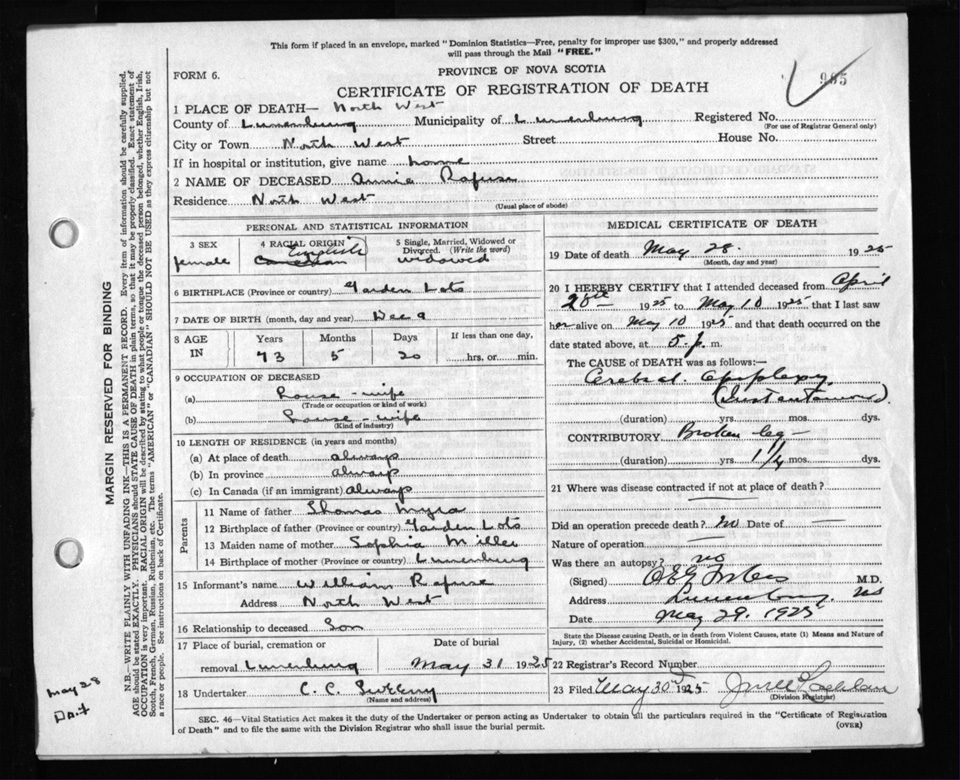 This form if placed in an envelope, marked "Dominion Statistics—Free, penalty for improper use $300," and properly addressed
will pass through the Mail "FREE."
PROVINCE OF NOVA SCOTIA
FORM 6.
CERTIFICATE OF REGISTRATION OF DEATH
1 PLACE OF DEATH— North West
County of Lunenburg Municipality of Lunenburg Registered No.
(For use of Registrar General only)
City or Town North West Street House No.
If in hospital or institution, give name home
2 NAME OF DECEASED Annie Rafuse
Residence North West
(Usual place of abode)
PERSONAL AND STATISTICAL INFORMATION
3 SEX 4 RACIAL ORIGIN 5 Single, Married, Widowed or
Divorced. (Write the word)
English
female Canadian widowed
6 BIRTHPLACE (Province or country) Garden Lots
7 DATE OF BIRTH (month, day and year) Dec 9
8 AGE IN Years Months Days If less than one day,
73 5 20 hrs. or min.
9 OCCUPATION OF DECEASED
(a) House-wife
(Trade or occupation or kind of work)
(b) House-wife
(Kind of industry)
10 LENGTH OF RESIDENCE (in years and months)
(a) At place of death always
(b) In province always
(c) In Canada (if an immigrant) always
Parents
11 Name of father Thomas Myra
12 Birthplace of father (Province or country) Garden Lots
13 Maiden name of mother Sophia Miller
14 Birthplace of mother (Province or country) Lunenburg
15 Informant's name William Rafuse
Address North West
16 Relationship to deceased Son
17 Place of burial, cremation or Date of burial
removal Lunenburg May 31 1925
18 Undertaker C. C.
(Name and address)
MEDICAL CERTIFICATE OF DEATH
19 Date of death May 28. 1925
(Month, day and year)
20 I HEREBY CERTIFY that I attended deceased from April
28th 1925 to May 10 1925 that I last saw
her alive on May 10 1925 and that death occurred on the
date stated above, at 5 p. m.
The CAUSE of DEATH was as follows:—
Cerebral Apoplexy.
(Instantaneous)
(duration) yrs. mos. dys.
CONTRIBUTORY Broken leg —
(duration) yrs. 1 1/4 mos. dys.
21 Where was disease contracted if not at place of death? —
Did an operation precede death? No Date of —
Nature of operation —
Was there an autopsy? no
(Signed) M.D.
Address Lunenburg NS
Date May 29. 1925
State the Disease causing Death, or in death from Violent Causes, state (1) Means and Nature of
Injury, (2) whether Accidental, Suicidal or Homicidal.
22 Registrar's Record Number
23 Filed May 30 1925
(Division Registrar)
SEC. 46—Vital Statistics Act makes it the duty of the Undertaker or person acting as Undertaker to obtain all the particulars required in the "Certificate of Registration
of Death" and to file the same with the Division Registrar who shall issue the burial permit.
(OVER)
MARGIN RESERVED FOR BINDING
N.B.—WRITE PLAINLY WITH UNFADING INK—THIS IS A PERMANENT RECORD. Every item of information should be carefully supplied.
AGE should be stated EXACTLY. PHYSICIANS should STATE CAUSE OF DEATH in plain terms, so that it may be properly classified. Exact statement of
OCCUPATION is very important. RACIAL ORIGIN will be described by stating to what people or tongue the deceased person belonged, whether English, Irish,
Scotch, French, German, Russian, Ruthenian, etc. The terms "AMERICAN" or "CANADIAN" SHOULD NOT BE USED as they express citizenship but not
a race or people. See instructions on back of Certificate.
May 28